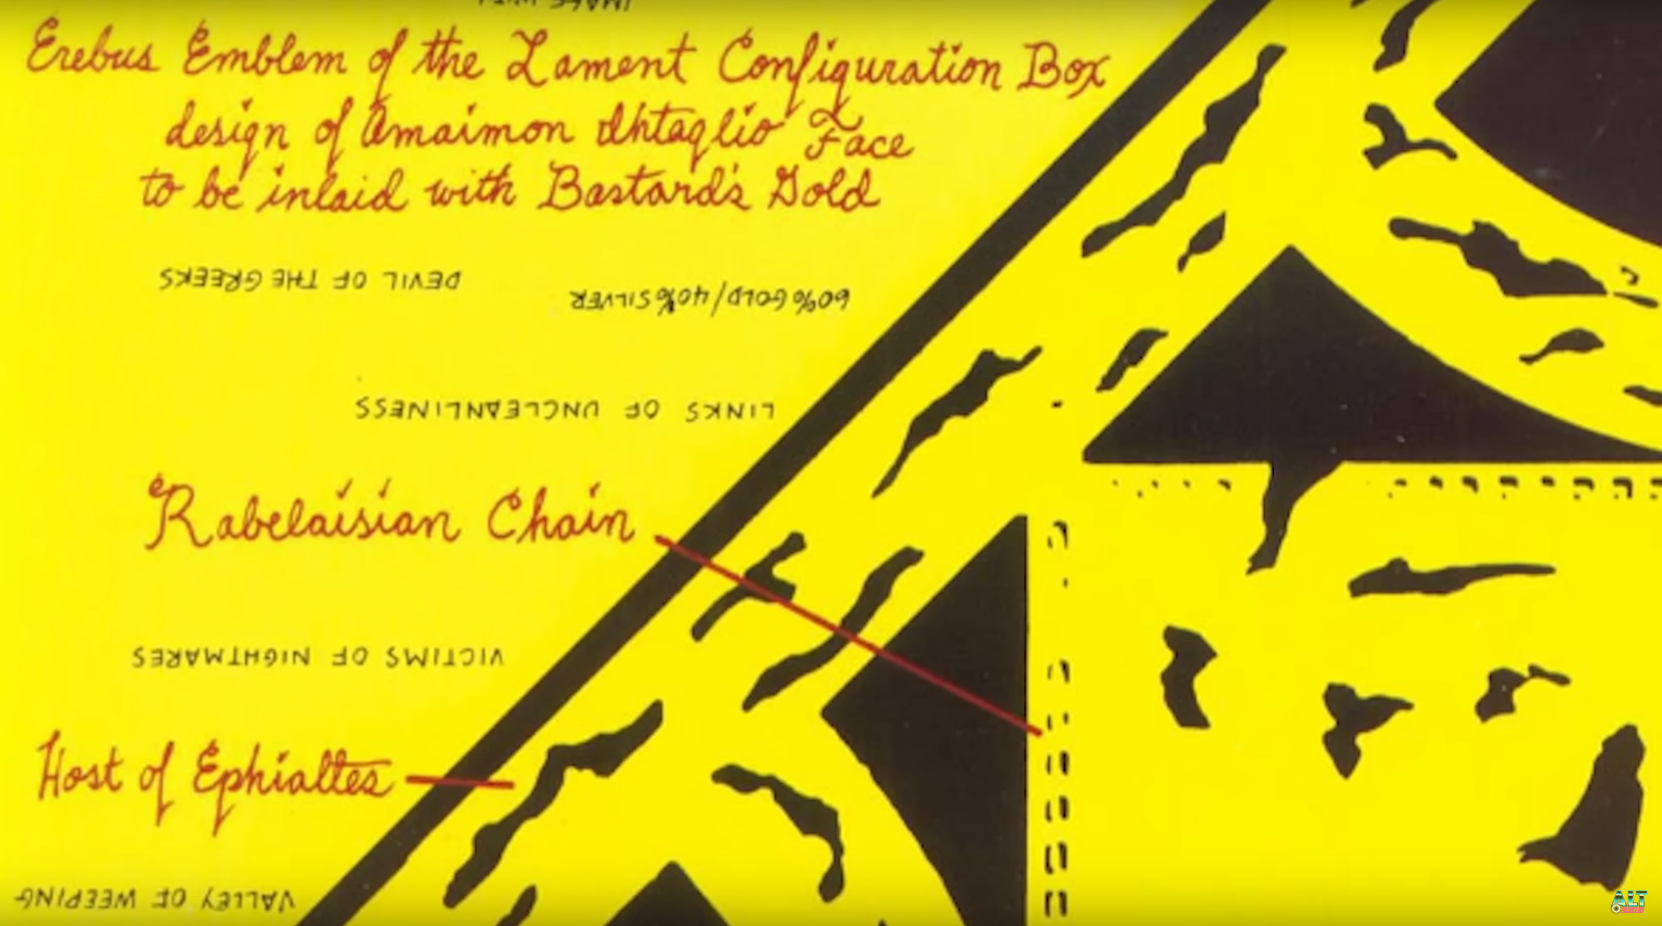 IMAGE WITH
Erebus Emblem of the Lament Configuration Box
design of Amaimon Intaglio Face
to be inlaid with Bastard's Gold
DEVIL OF THE GREEKS
60% GOLD/40% SILVER
LINKS OF UNCLEANLINESS
Rabelaisian Chain
VICTIMS OF NIGHTMARES
Host of Ephialtes
VALLEY OF WEEPING
ALT